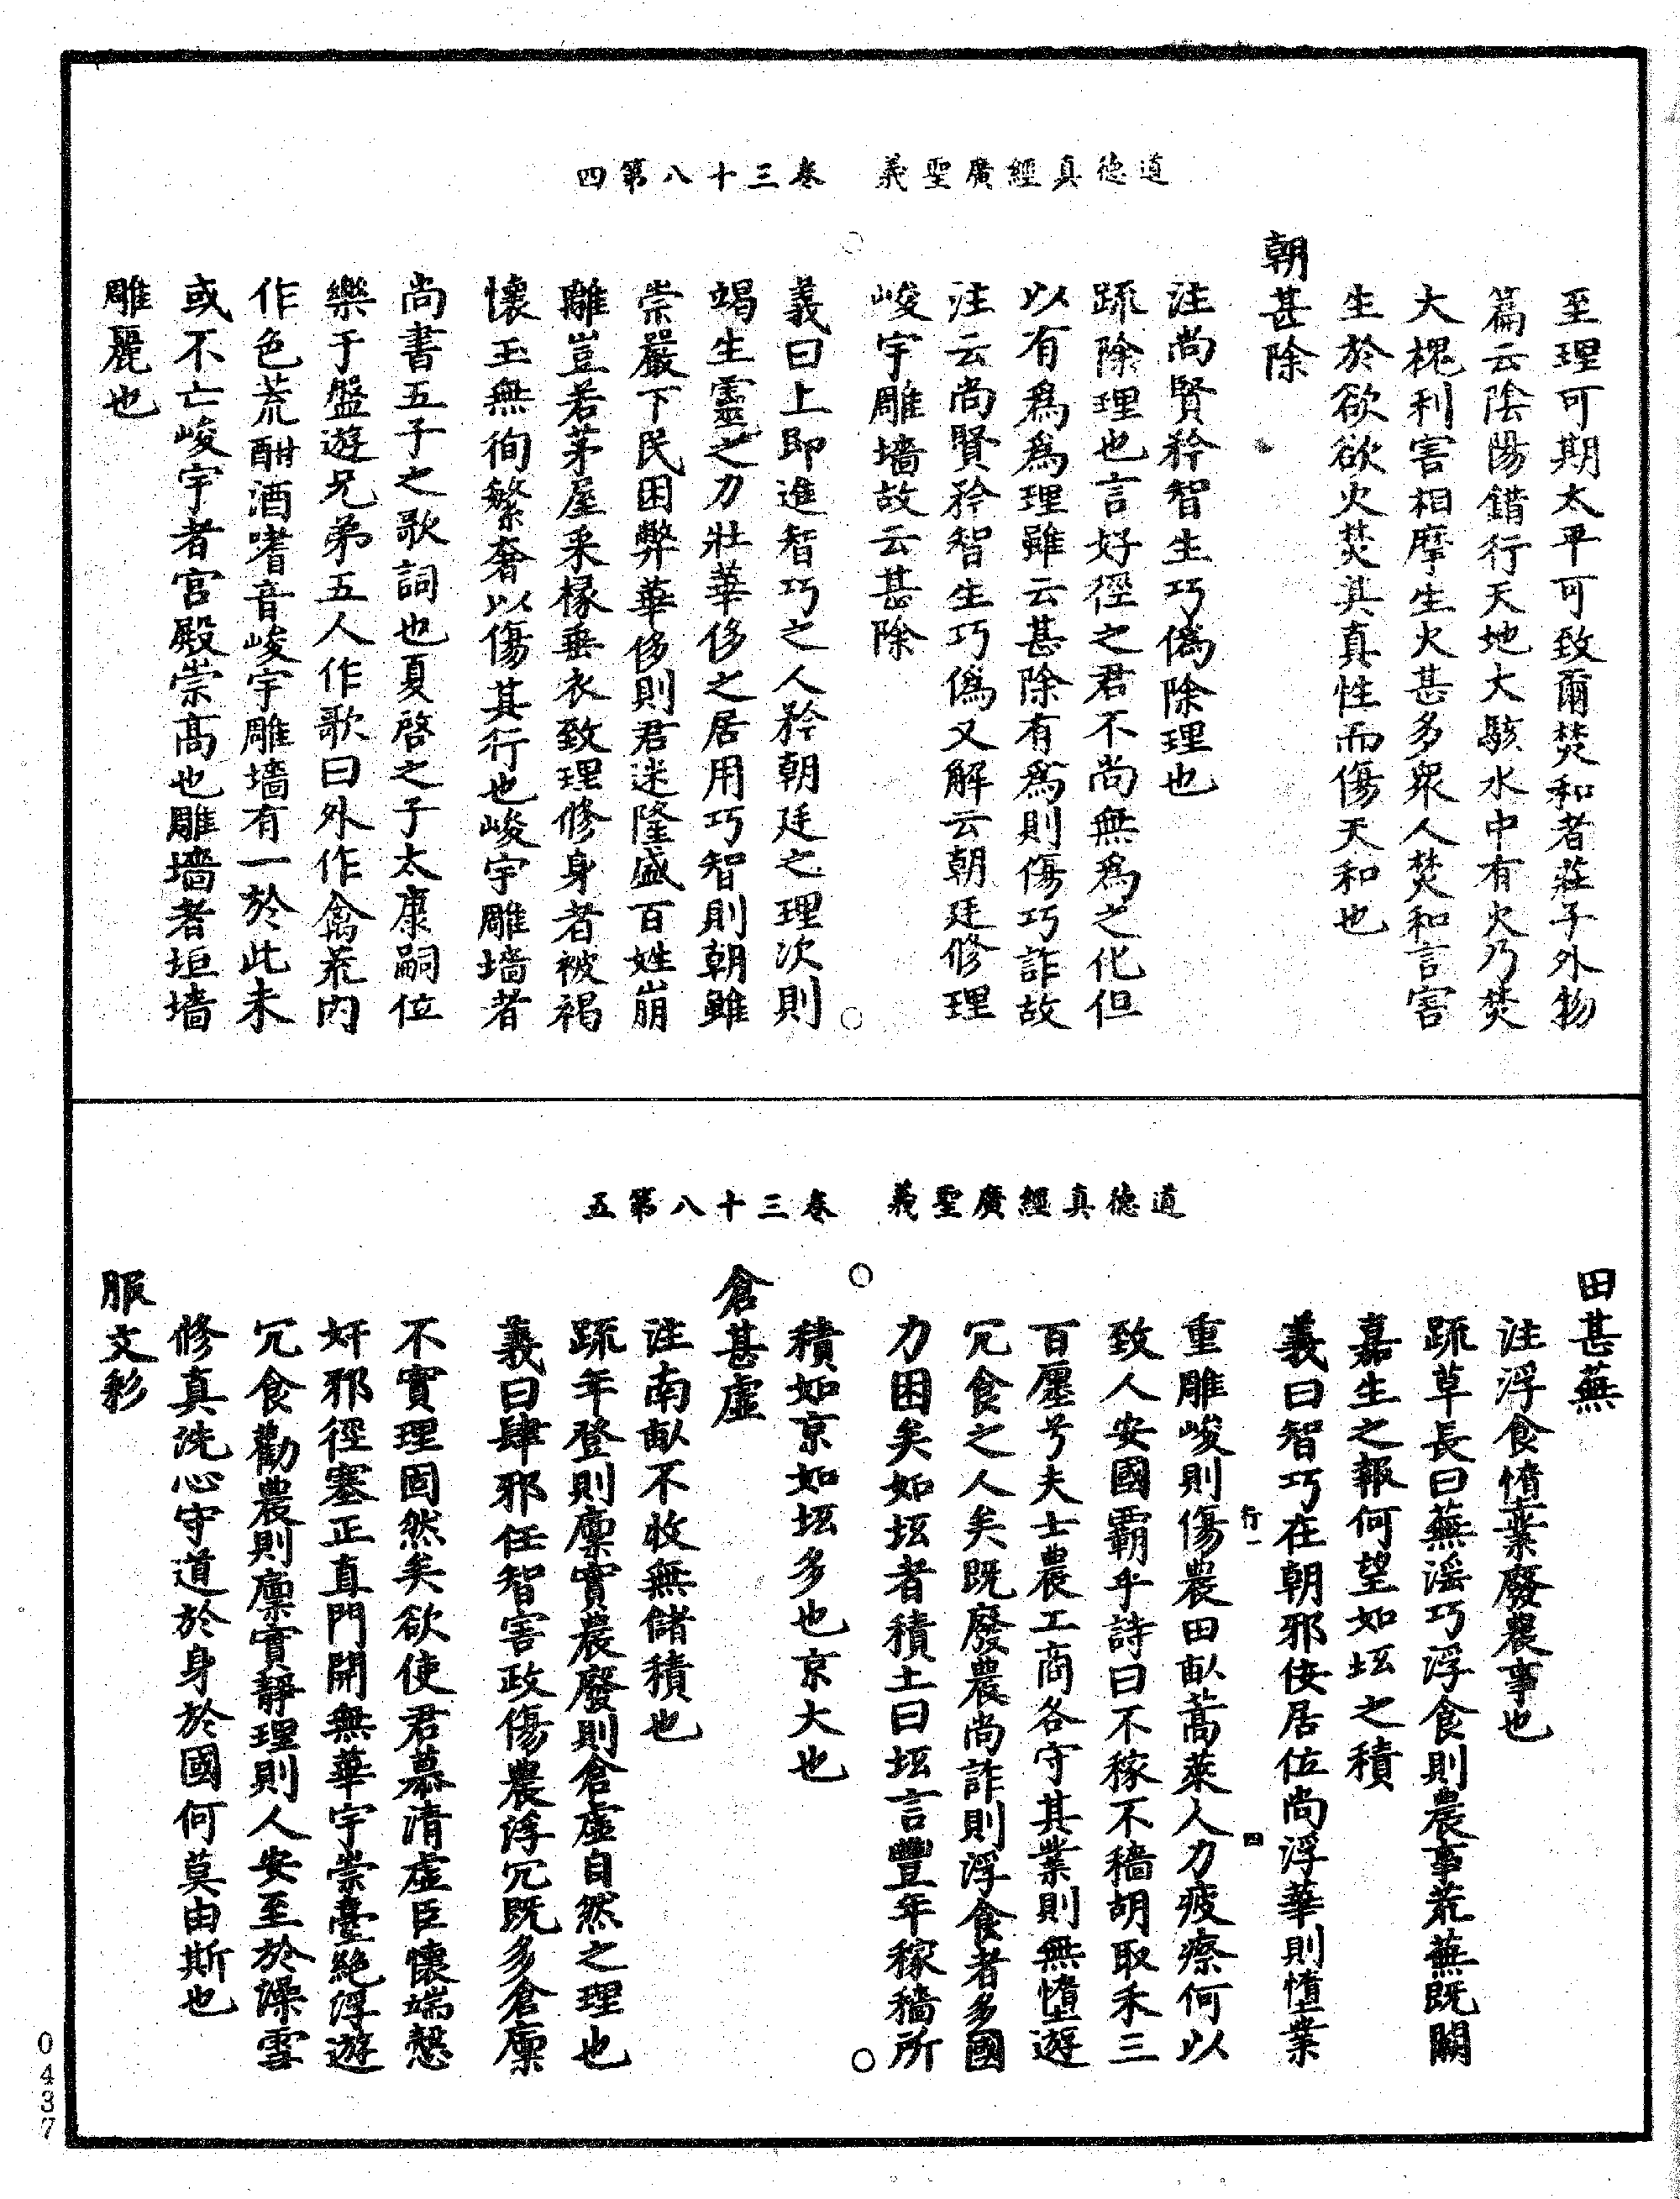 道德真經廣聖義　卷三十八第四
至理可期太平可致爾焚和者莊子外物
篇云陰陽錯行天地大駭水中有火乃焚
大槐利害相摩生火甚多衆人焚和言害
生於欲欲火焚其真性而傷天和也
朝甚除
注尚賢矜智生巧僞除理也
疏除理也言好徑之君不尚無爲之化但
以有爲爲理雖云甚除有爲則傷巧詐故
注云尚賢矜智生巧僞又解云朝廷修理
峻宇雕墻故云甚除
義曰上即進智巧之人矜朝廷之理次則
竭生靈之力壯華侈之居用巧智則朝雖
崇嚴下民困弊華侈則君迷隆盛百姓崩
離豈若茅屋采椽垂衣致理修身者被褐
懷玉無徇繁奢以傷其行也峻宇雕墻者
尚書五子之歌詞也夏啓之子太康嗣位
樂于盤遊兄弟五人作歌曰外作禽荒内
作色荒酣酒嗜音峻宇雕墻有一於此未
或不亡峻宇者宫殿崇高也雕墻者垣墻
雕麗也
道德真經廣聖義　卷三十八第五
田甚蕪
注浮食惰業廢農事也
疏草長曰蕪滛巧浮食則農事荒蕪既闕
嘉生之報何望如坻之積
義曰智巧在朝邪佞居位尚浮華則惰業
行一　四
重雕峻則傷農田畝蒿萊人力疲瘵何以
致人安國霸乎詩曰不稼不穡胡取禾三
百廛兮夫士農工商各守其業則無惰遊
冗食之人矣既廢農尚詐則浮食者多國
力困矣如坻者積土曰坻言豐年稼穡所
積如京如坻多也京大也
倉甚虛
注南畝不收無儲積也
疏年登則廩實農廢則倉虛自然之理也
義曰肆邪任智害政傷農浮冗既多倉廩
不實理固然矣欲使君慕清虛臣懷端慤
奸邪徑塞正直門開無華宇崇臺絶浮遊
冗食勸農則廩實靜理則人安至於澡雪
修真洗心守道於身於國何莫由斯也
服文彩
0437